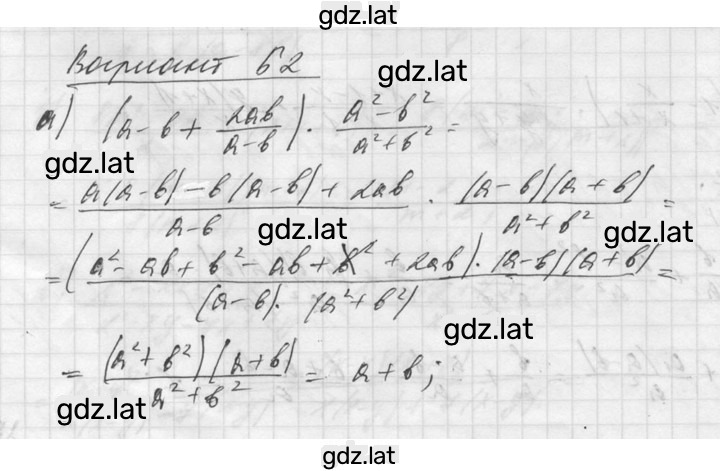 gdz.lat
Вариант Б2
gdz.lat
а) (a-b+\frac{2ab}{a-b})·\frac{a²-b²}{a²+b²}=
gdz.lat
=\frac{a(a-b)-b(a-b)+2ab}{a-b}·\frac{(a-b)(a+b)}{a²+b²}=
gdz.lat gdz.lat
=\frac{(a²-ab+b²-ab+b²+2ab)·(a-b)(a+b)}{(a-b)·(a²+b²)}=
gdz.lat
=\frac{(a²+b²)(a+b)}{a²+b²}=a+b;
gdz.lat
gdz.lat